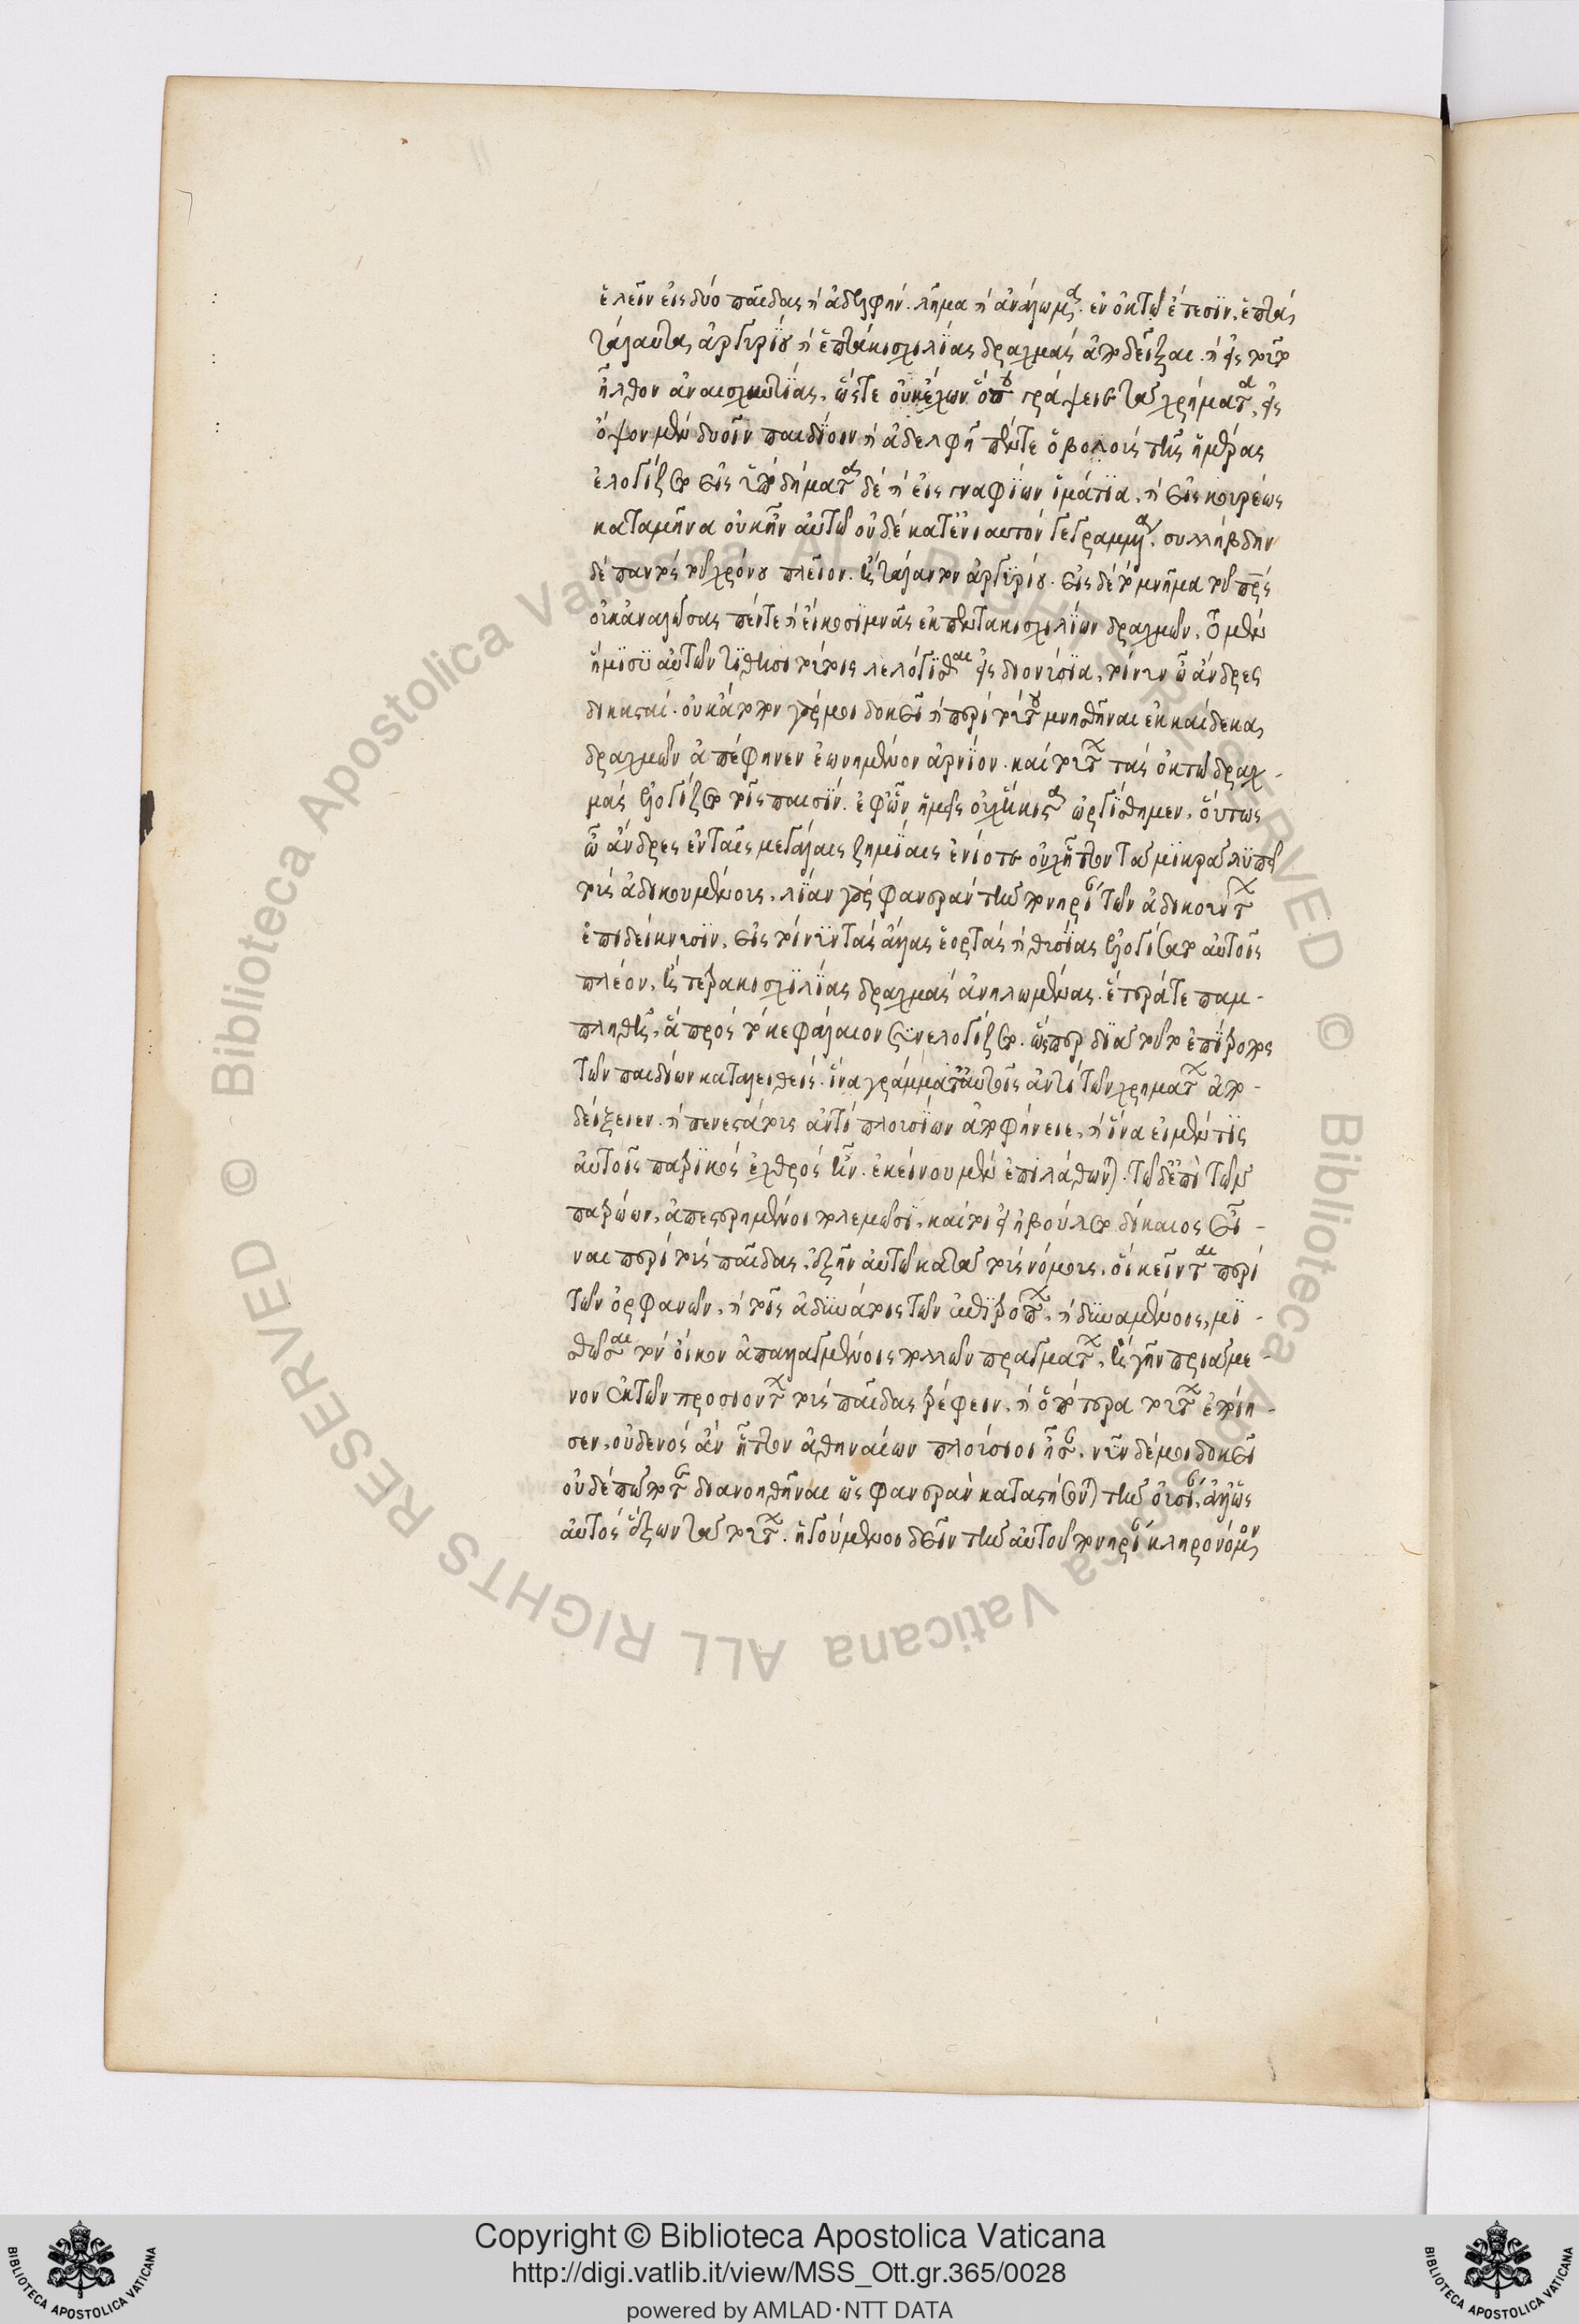 ἑλεῖν εἰς δύο παῖδας καὶ ἀδελφήν. λῆμα καὶ ἀνάλωμα. ἐν ὀκτὼ ἔτεσϊν. ἑπτὰ
τάλαντα ἀργυρϊου καὶ ἑπτάκισχιλϊας δραχμὰς ἀποδεῖξαι. καὶ εἰς τοῦτο
ἦλθον ἀναισχυντϊας, ὥστε οὐκ ἔχων ὅποι τρέψειε τὰ χρήματα, εἰς
ὄψον μὲν δυοῖν παιδϊοιν καὶ ἀδελφῇ πέντε ὀβολοὺς τῆς ἡμέρας
ἐλογίζετο εἰς ὑποδήματα δὲ καὶ εἰς γναφϊον ἱμάτϊα, καὶ εἰς κουρέως
καταμῆνα οὐκ ἦν αὐτῶ οὐδὲ κατ' ἐνιαυτὸν γεγραμμένα. συλλήβδην
δὲ παντὸς τοῦ χρόνου πλεῖον. ἢ τάλαντον ἀργυρίου. εἰς δὲ τὸ μνῆμα τοῦ πρς
οὐκ ἀναλώσας πέντε καὶ εἴκοσϊ μνᾶς ἐκ πεντακισχιλϊων δραχμῶν. τὸ μὲν
ἥμϊσϋ αὐτῶν τϊθησι τούτοις λελόγϊσθαι εἰς διονύσϊα, τοίνυν ὦ ἄνδρες
δικασταί. οὐκ ἄτοπον γάρ μοι δοκεῖ καὶ περὶ τούτου μνησθῆναι ἑκκαίδεκα
δραχμῶν ἀπέφηνεν ἐωνημένον ἀρνϊον. καὶ τούτων τὰς ὀκτὼ δραχ-
μὰς ἐλογίζετο τοῖς παισϊν. ἐφ' ᾧ ἡμεῖς οὐχ ἥκιστα ὠργϊσθημεν. οὕτως
ὦ ἄνδρες ἐν ταῖς μεγάλαις ζημϊαις ἐνίοτε οὐχ ἧττον τὰ μϊκρὰ λϋπεῖ
τοὺς ἀδικουμένους. λϊαν γὰρ φανερὰν τὴν πονηρίαν τῶν ἀδικούντων
ἐπιδείκνυσϊν. εἰς τοίνϋν τὰς ἄλλας ἑορτὰς καὶ θυσϊας ἐλογίσατο αὐτοῖς
πλέον, ἢ τετρακισχϊλϊας δραχμὰς ἀνηλωμένας. ἕτερά τε παμ-
πληθῆ, ἃ πρὸς τὸ κεφάλαιον σϋνελογίζετο. ὥσπερ διὰ τοῦτο ἐπϊτροπος
τῶν παιδίων καταλειφθείς. ἵνα γράμματα αὐτοῖς ἀντὶ τῶν χρημάτων ἀπο-
δείξειεν. καὶ πενεστάτους ἀντὶ πλουσϊων ἀποφήνειε, καὶ ἵνα εἰ μέν τϊς
αὐτοῖς πατρϊκὸς ἐχθρὸς ἦν. ἐκείνου μὲν ἐπιλάθωνται. τῶ δ' ἐπιτρόπω τῶν
πατρώων, ἀπεστερημένοι πολεμῶσϊ, καίτοι εἰ ἠβούλετο δίκαιος εἶ-
ναι περὶ τοὺς παῖδας, ἐξῆν αὐτῶ κατὰ τοὺς νόμους, οἳ κεῖνται περὶ
τῶν ὀρφανῶν, καὶ τοῖς ἀδϋνάτοις τῶν ἐπϊτρόπων, καὶ δϋναμένοις, μϊ-
σθῶσαι τὸν οἶκον ἀπηλλαγμένοις πολλῶν πραγμάτων, ἢ γῆν πριάμε-
νον ἐκ τῶν προσιόντων τοὺς παῖδας τρέφειν, καὶ ὁπότερα τούτων ἐποίη-
σεν, οὐδενὸς ἂν ἧττον ἀθηναίων πλούσιοι ἦσαν. νῦν δέ μοι δοκεῖ
οὐδὲ πώποτε διανοηθῆναι ὡς φανερὰν καταστήσων τὴν οὐσίαν, ἀλλ' ὡς
αὐτὸς ἕξων τὰ τούτων. ἡγούμενος δεῖν τὴν αὐτοῦ πονηρίαν κληρονόμον